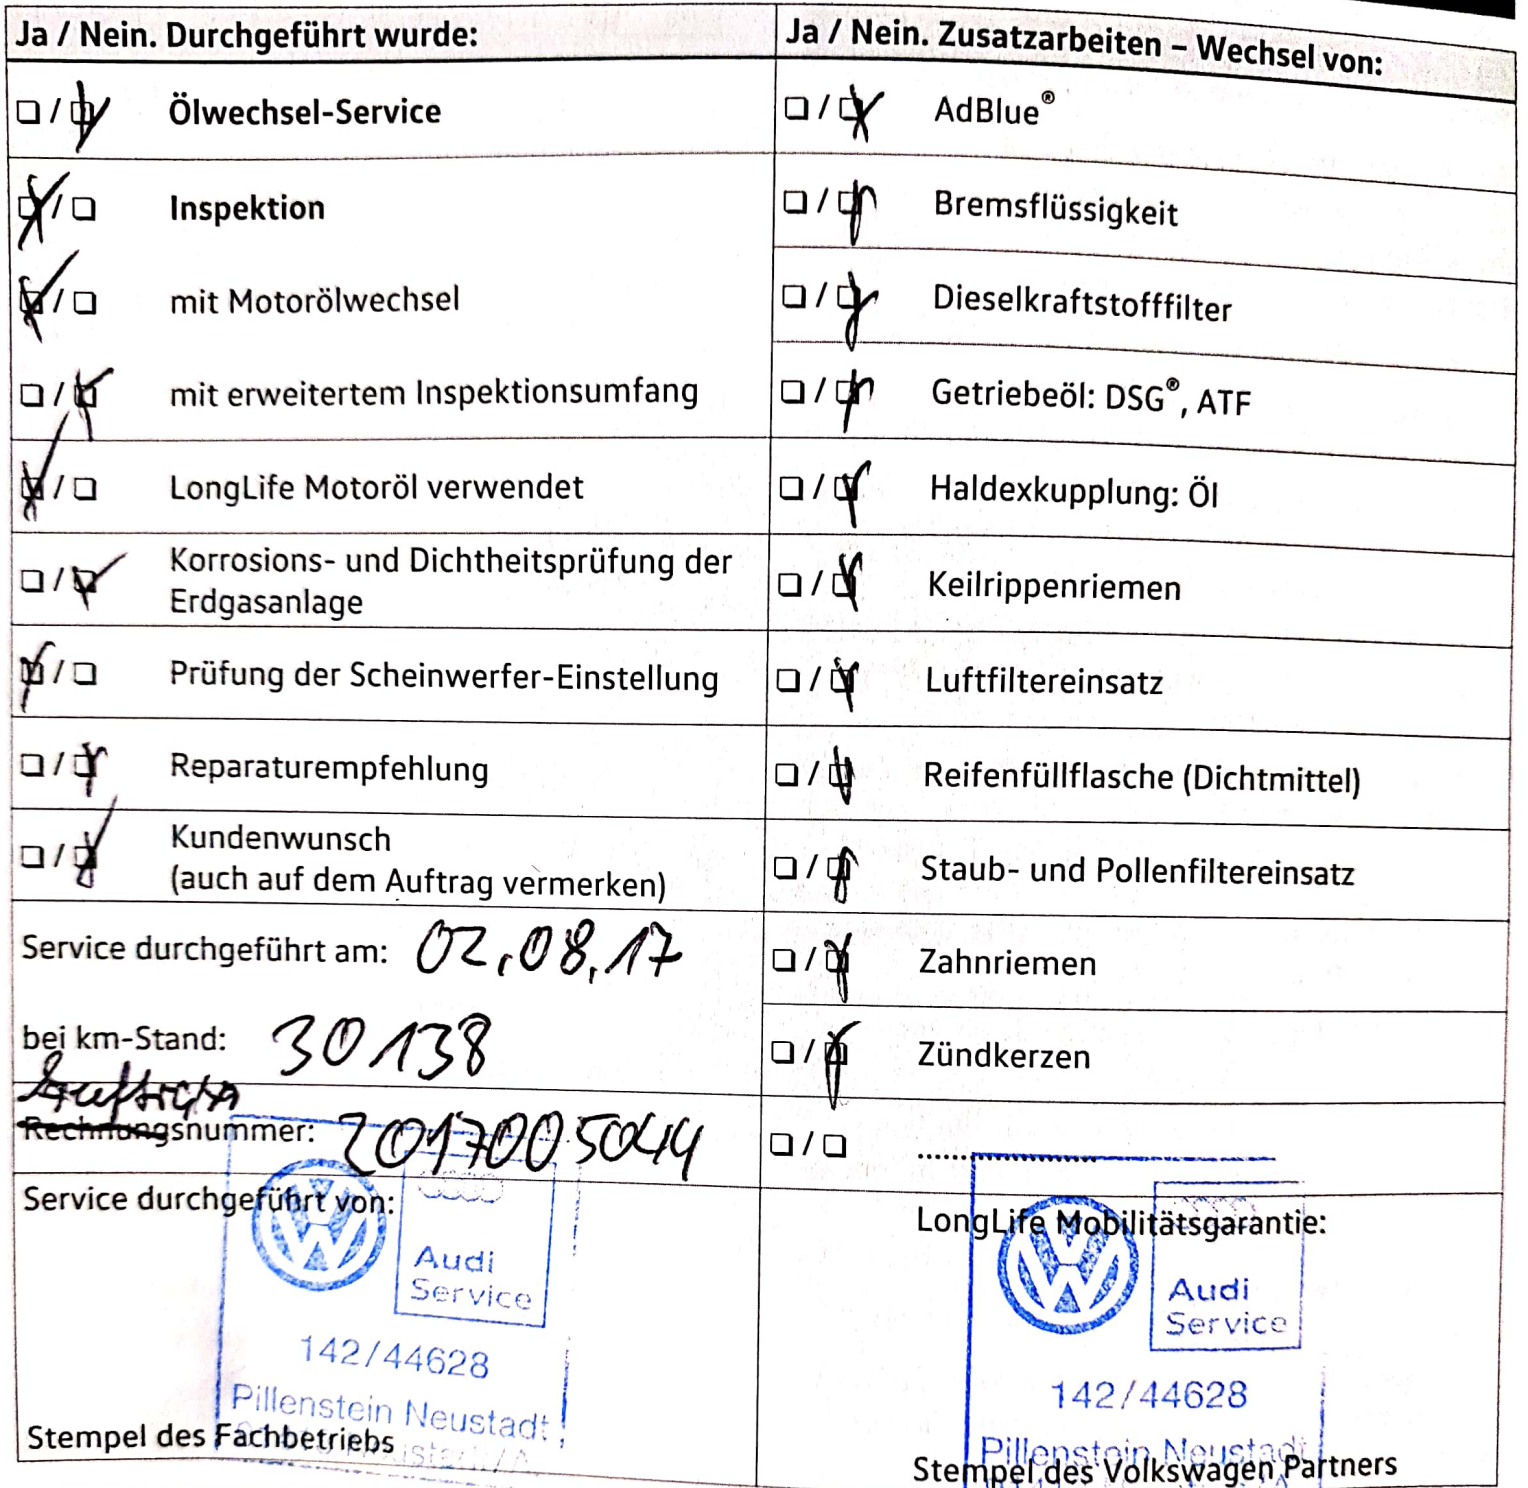 Ja / Nein. Durchgeführt wurde:
☐ / ☒ Ölwechsel-Service
☒ / ☐ Inspektion
☒ / ☐ mit Motorölwechsel
☐ / ☒ mit erweitertem Inspektionsumfang
☒ / ☐ LongLife Motoröl verwendet
☐ / ☒ Korrosions- und Dichtheitsprüfung der
Erdgasanlage
☒ / ☐ Prüfung der Scheinwerfer-Einstellung
☐ / ☒ Reparaturempfehlung
☐ / ☒ Kundenwunsch
(auch auf dem Auftrag vermerken)
Service durchgeführt am: 02.08.17
bei km-Stand: 30138
Auftrags
Rechnungsnummer: 2017005044
Service durchgeführt von:
Audi
Service
142/44628
Pillenstein Neustadt
Stempel des Fachbetriebs
Ja / Nein. Zusatzarbeiten – Wechsel von:
☐ / ☒ AdBlue®
☐ / ☒ Bremsflüssigkeit
☐ / ☒ Dieselkraftstofffilter
☐ / ☒ Getriebeöl: DSG®, ATF
☐ / ☒ Haldexkupplung: Öl
☐ / ☒ Keilrippenriemen
☐ / ☒ Luftfiltereinsatz
☐ / ☒ Reifenfüllflasche (Dichtmittel)
☐ / ☒ Staub- und Pollenfiltereinsatz
☐ / ☒ Zahnriemen
☐ / ☒ Zündkerzen
☐ / ☐ ....................
LongLife Mobilitätsgarantie:
Audi
Service
142/44628
Pillenstein Neustadt
Stempel des Volkswagen Partners